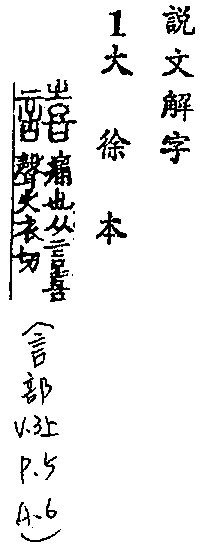 説文解字
1大徐本
譆 痛也从言喜
聲火衣切
(言部
V.3上
P.5
A.6)